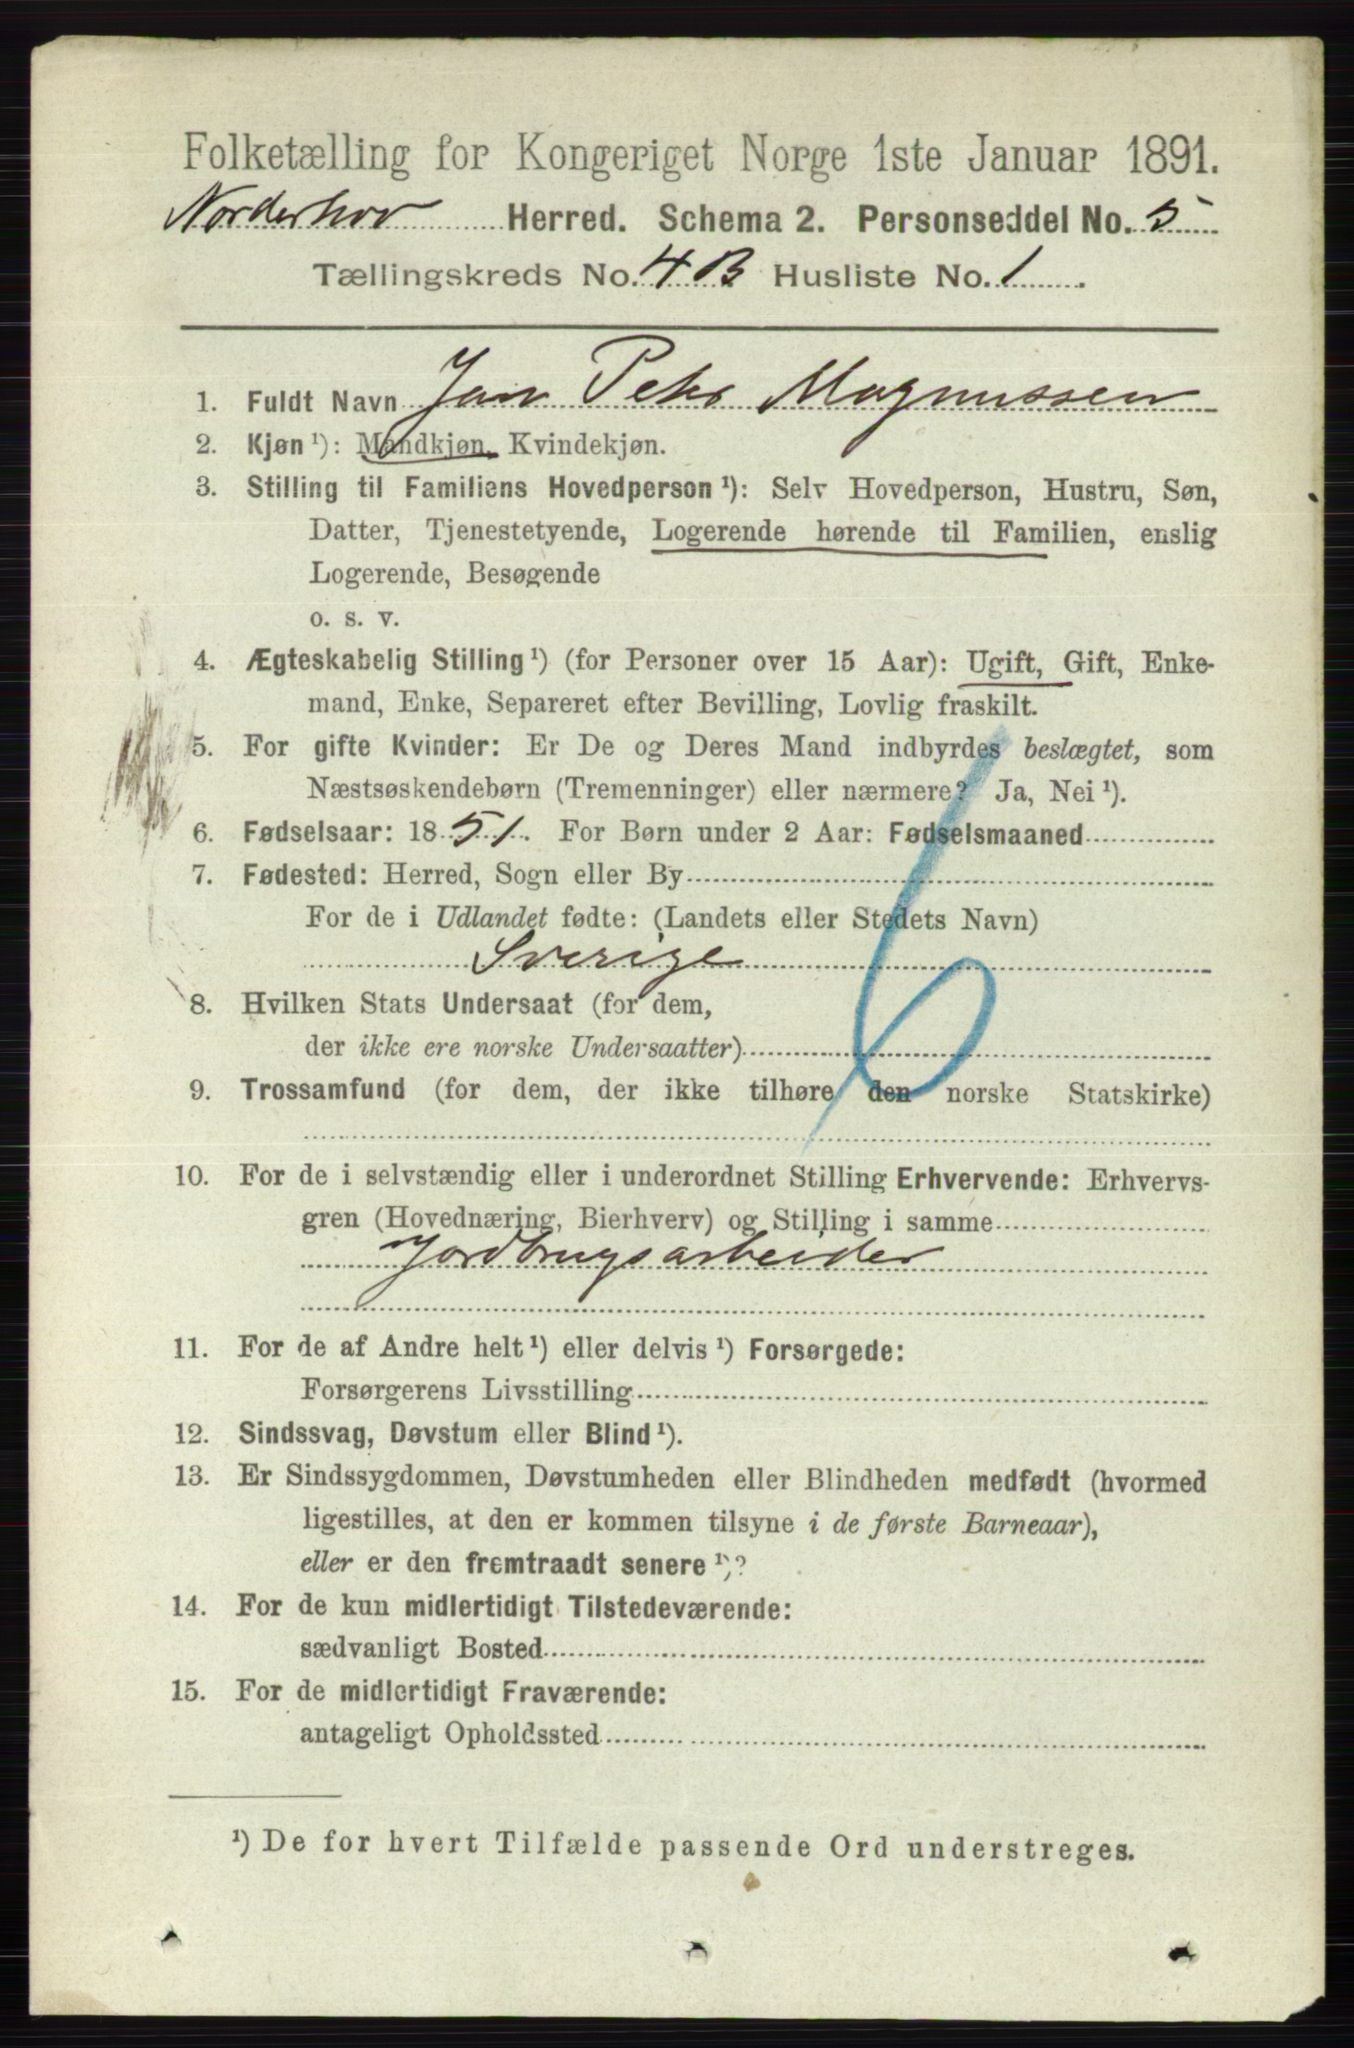 Folketælling for Kongeriget Norge 1ste Januar 1891.
Norderhov Herred. Schema 2. Personseddel No. 5
Tællingskreds No. 4 B Husliste No. 1.
1. Fuldt Navn Jan Peter Magnussen
2. Kjøn ¹): Mandkjøn, Kvindekjøn.
3. Stilling til Familiens Hovedperson ¹): Selv Hovedperson, Hustru, Søn,
Datter, Tjenestetyende, Logerende hørende til Familien, enslig
Logerende, Besøgende
o. s. v.
4. Ægteskabelig Stilling ¹) (for Personer over 15 Aar): Ugift, Gift, Enke-
mand, Enke, Separeret efter Bevilling, Lovlig fraskilt.
5. For gifte Kvinder: Er De og Deres Mand indbyrdes beslægtet, som
Næstsøskendebørn (Tremenninger) eller nærmere? Ja, Nei ¹).
6. Fødselsaar: 1851. For Børn under 2 Aar: Fødselsmaaned
7. Fødested: Herred, Sogn eller By
For de i Udlandet fødte: (Landets eller Stedets Navn)
Sverige
8. Hvilken Stats Undersaat (for dem,
der ikke ere norske Undersaatter)
9. Trossamfund (for dem, der ikke tilhøre den norske Statskirke)
10. For de i selvstændig eller i underordnet Stilling Erhvervende: Erhvervs-
gren (Hovednæring, Bierhverv) og Stilling i samme
Jordbrugsarbeider
11. For de af Andre helt ¹) eller delvis ¹) Forsørgede:
Forsørgerens Livsstilling
12. Sindssvag, Døvstum eller Blind ¹).
13. Er Sindssygdommen, Døvstumheden eller Blindheden medfødt (hvormed
ligestilles, at den er kommen tilsyne i de første Barneaar),
eller er den fremtraadt senere ¹)?
14. For de kun midlertidigt Tilstedeværende:
sædvanligt Bosted
15. For de midlertidigt Fraværende:
antageligt Opholdssted
¹) De for hvert Tilfælde passende Ord understreges.